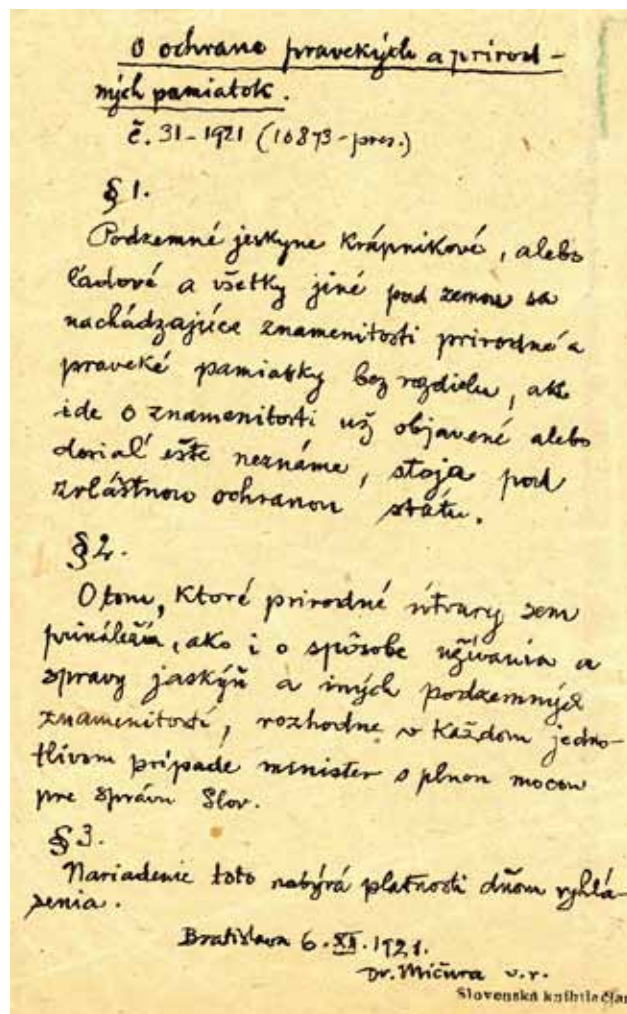 O ochrane pravekých a prírod-
ných pamiatok.
č. 31-1921 (16873-pres.)
§ 1.
Podzemné jeskyne krápnikové, alebo
ľadové a všetky jiné pod zemou sa
nachádzajúce znamenitosti prirodné a
praveké pamiatky bez rozdielu, ak
ide o znamenitosti už objavené alebo
dosiaľ ešte neznáme, stoja pod
zvláštnou ochranou státu.
§ 2.
O tom, ktoré prirodné útvary sem
prináležia, ako i o spôsobe užívania a
spravy jaskýň a iných podzemných
znamenitostí, rozhodne v každom jedno-
tlivom prípade minister s plnou mocou
pre správu Slov.
§ 3.
Nariadenie toto nabýrá platnosti dňom vyhlá-
senia.
Bratislava 6. XII. 1921.
Dr. Mičura v.r.
Slovenská knihtlačiar